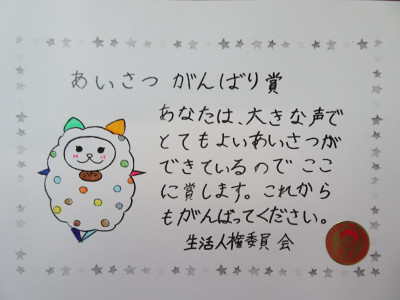 あいさつ がんばり賞
あなたは、大きな声で
とてもよいあいさつが
できているので ここ
に賞します。これから
もがんばってください。
生活人権委員会